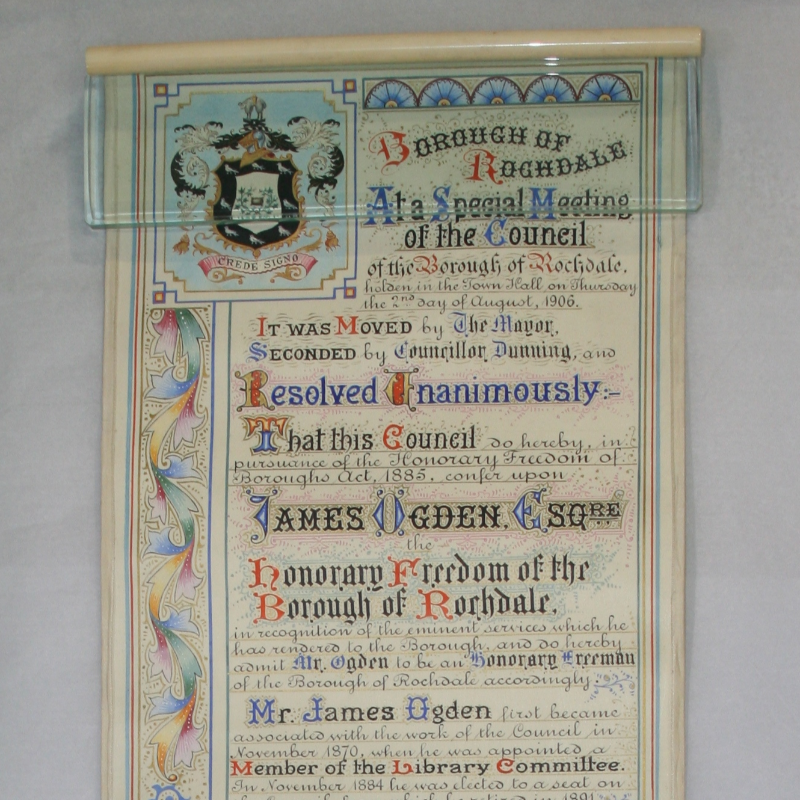 CREDE SIGNO
BOROUGH OF
ROCHDALE
At a Special Meeting
of the Council
of the Borough of Rochdale,
holden in the Town Hall on Thursday
the 2nd day of August, 1906.
IT WAS MOVED by The Mayor,
SECONDED by Councillor Dunning, and
Resolved Unanimously:-
That this Council do hereby, in
pursuance of the Honorary Freedom of
Boroughs Act, 1885, confer upon
JAMES OGDEN, ESQRE
the
Honorary Freedom of the
Borough of Rochdale,
in recognition of the eminent services which he
has rendered to the Borough, and do hereby
admit Mr. Ogden to be an Honorary Freeman
of the Borough of Rochdale accordingly.
Mr. James Ogden first became
associated with the work of the Council in
November 1870, when he was appointed a
Member of the Library Committee.
In November 1884 he was elected to a seat on
which he retired in 1891